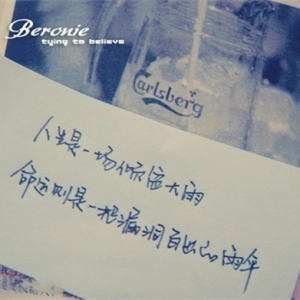 Beronie
tying to believe
Carlsberg
人生是一场倾盆大雨
命运则是一把漏洞百出的雨伞